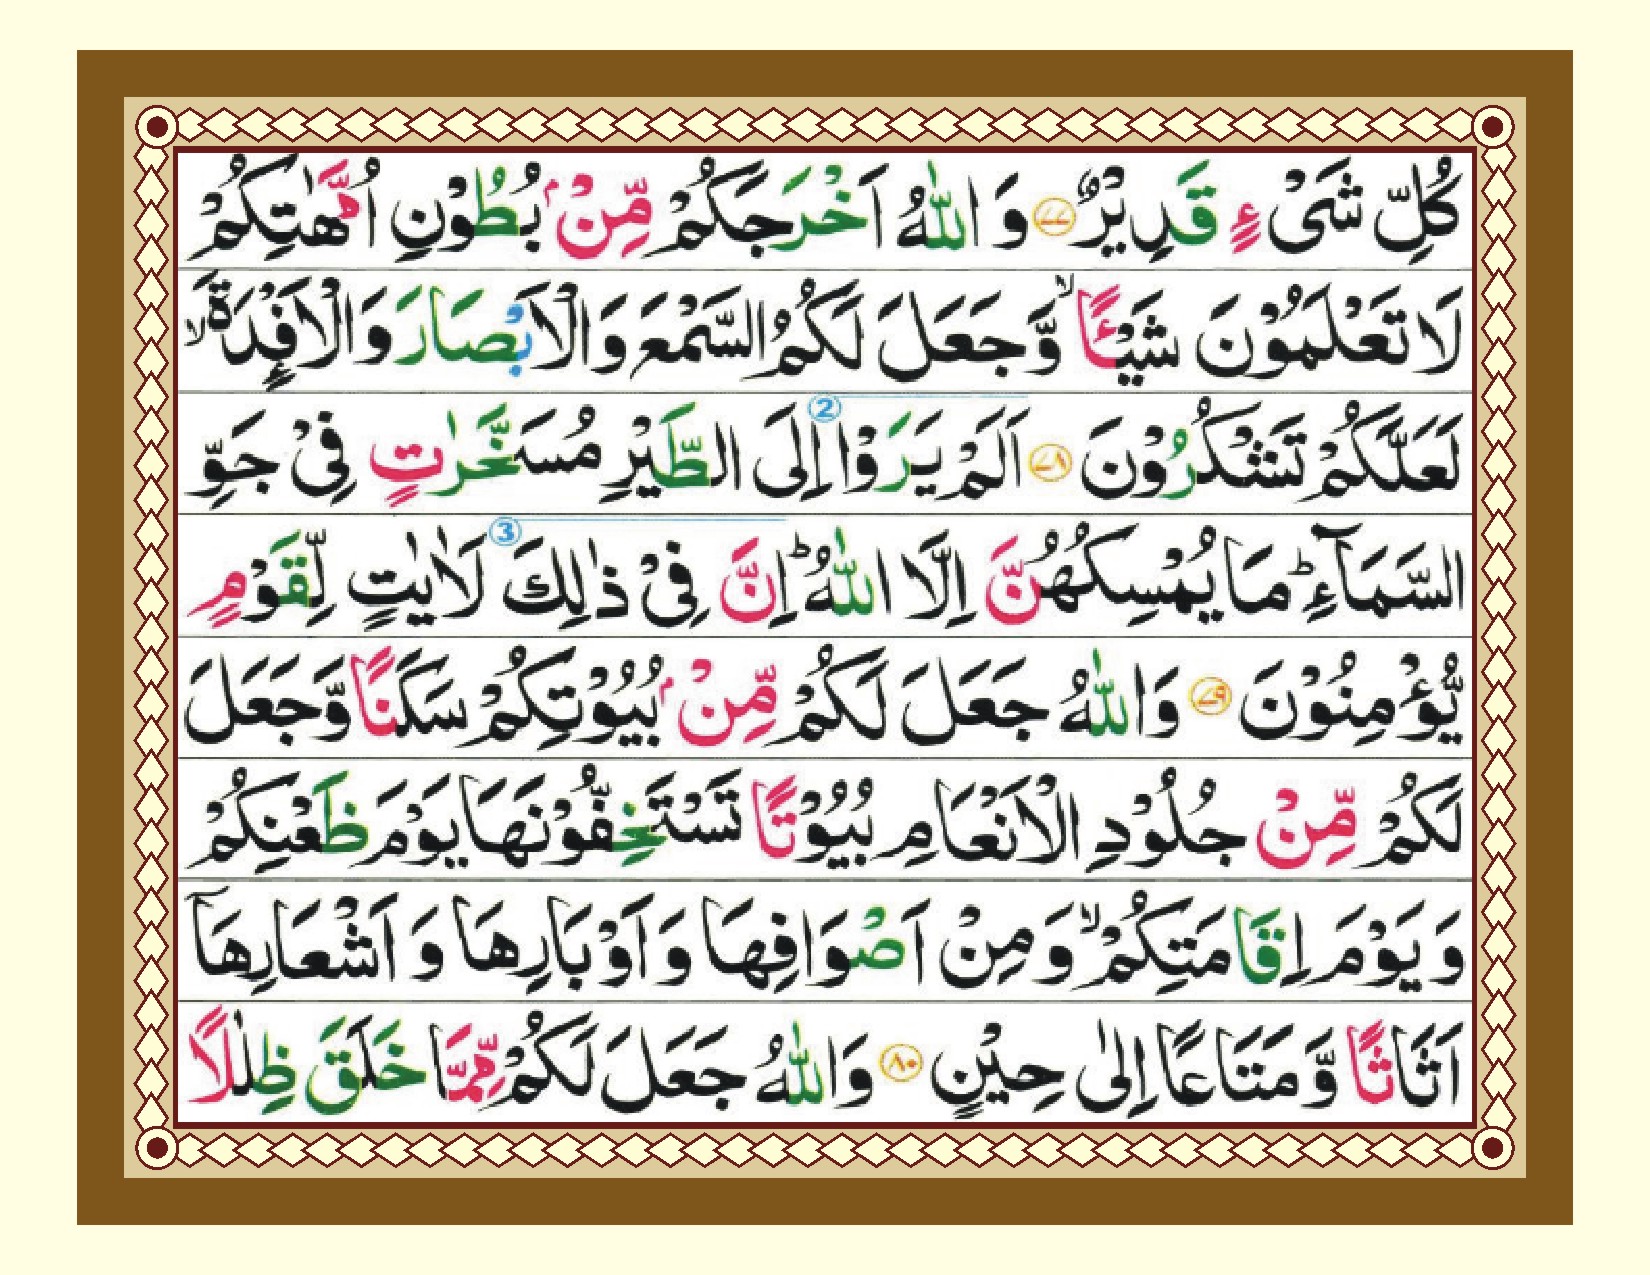 كُلِّ شَىْءٍ قَدِيْرٌ ﴿٧٧﴾ وَ اللّٰهُ اَخْرَجَكُمْ مِّنْۢ بُطُوْنِ اُمَّهٰتِكُمْ
لَا تَعْلَمُوْنَ شَيْـًٔا ۙ وَّ جَعَلَ لَكُمُ السَّمْعَ وَ الْاَبْصَارَ وَ الْاَفْـِٕدَةَ ۙ
لَعَلَّكُمْ تَشْكُرُوْنَ ﴿٧٨﴾ اَلَمْ يَرَوْا 2 اِلَى الطَّيْرِ مُسَخَّرٰتٍ فِىْ جَوِّ
السَّمَآءِ ؕ مَا يُمْسِكُهُنَّ اِلَّا اللّٰهُ ؕ اِنَّ فِىْ ذٰلِكَ 3 لَاٰيٰتٍ لِّقَوْمٍ
يُّؤْمِنُوْنَ ﴿٧٩﴾ وَ اللّٰهُ جَعَلَ لَكُمْ مِّنْۢ بُيُوْتِكُمْ سَكَنًا وَّ جَعَلَ
لَكُمْ مِّنْ جُلُوْدِ الْاَنْعَامِ بُيُوْتًا تَسْتَخِفُّوْنَهَا يَوْمَ ظَعْنِكُمْ
وَ يَوْمَ اِقَامَتِكُمْ ۙ وَ مِنْ اَصْوَافِهَا وَ اَوْبَارِهَا وَ اَشْعَارِهَاۤ
اَثَاثًا وَّ مَتَاعًا اِلٰى حِيْنٍ ﴿٨٠﴾ وَ اللّٰهُ جَعَلَ لَكُمْ مِّمَّا خَلَقَ ظِلٰلًا